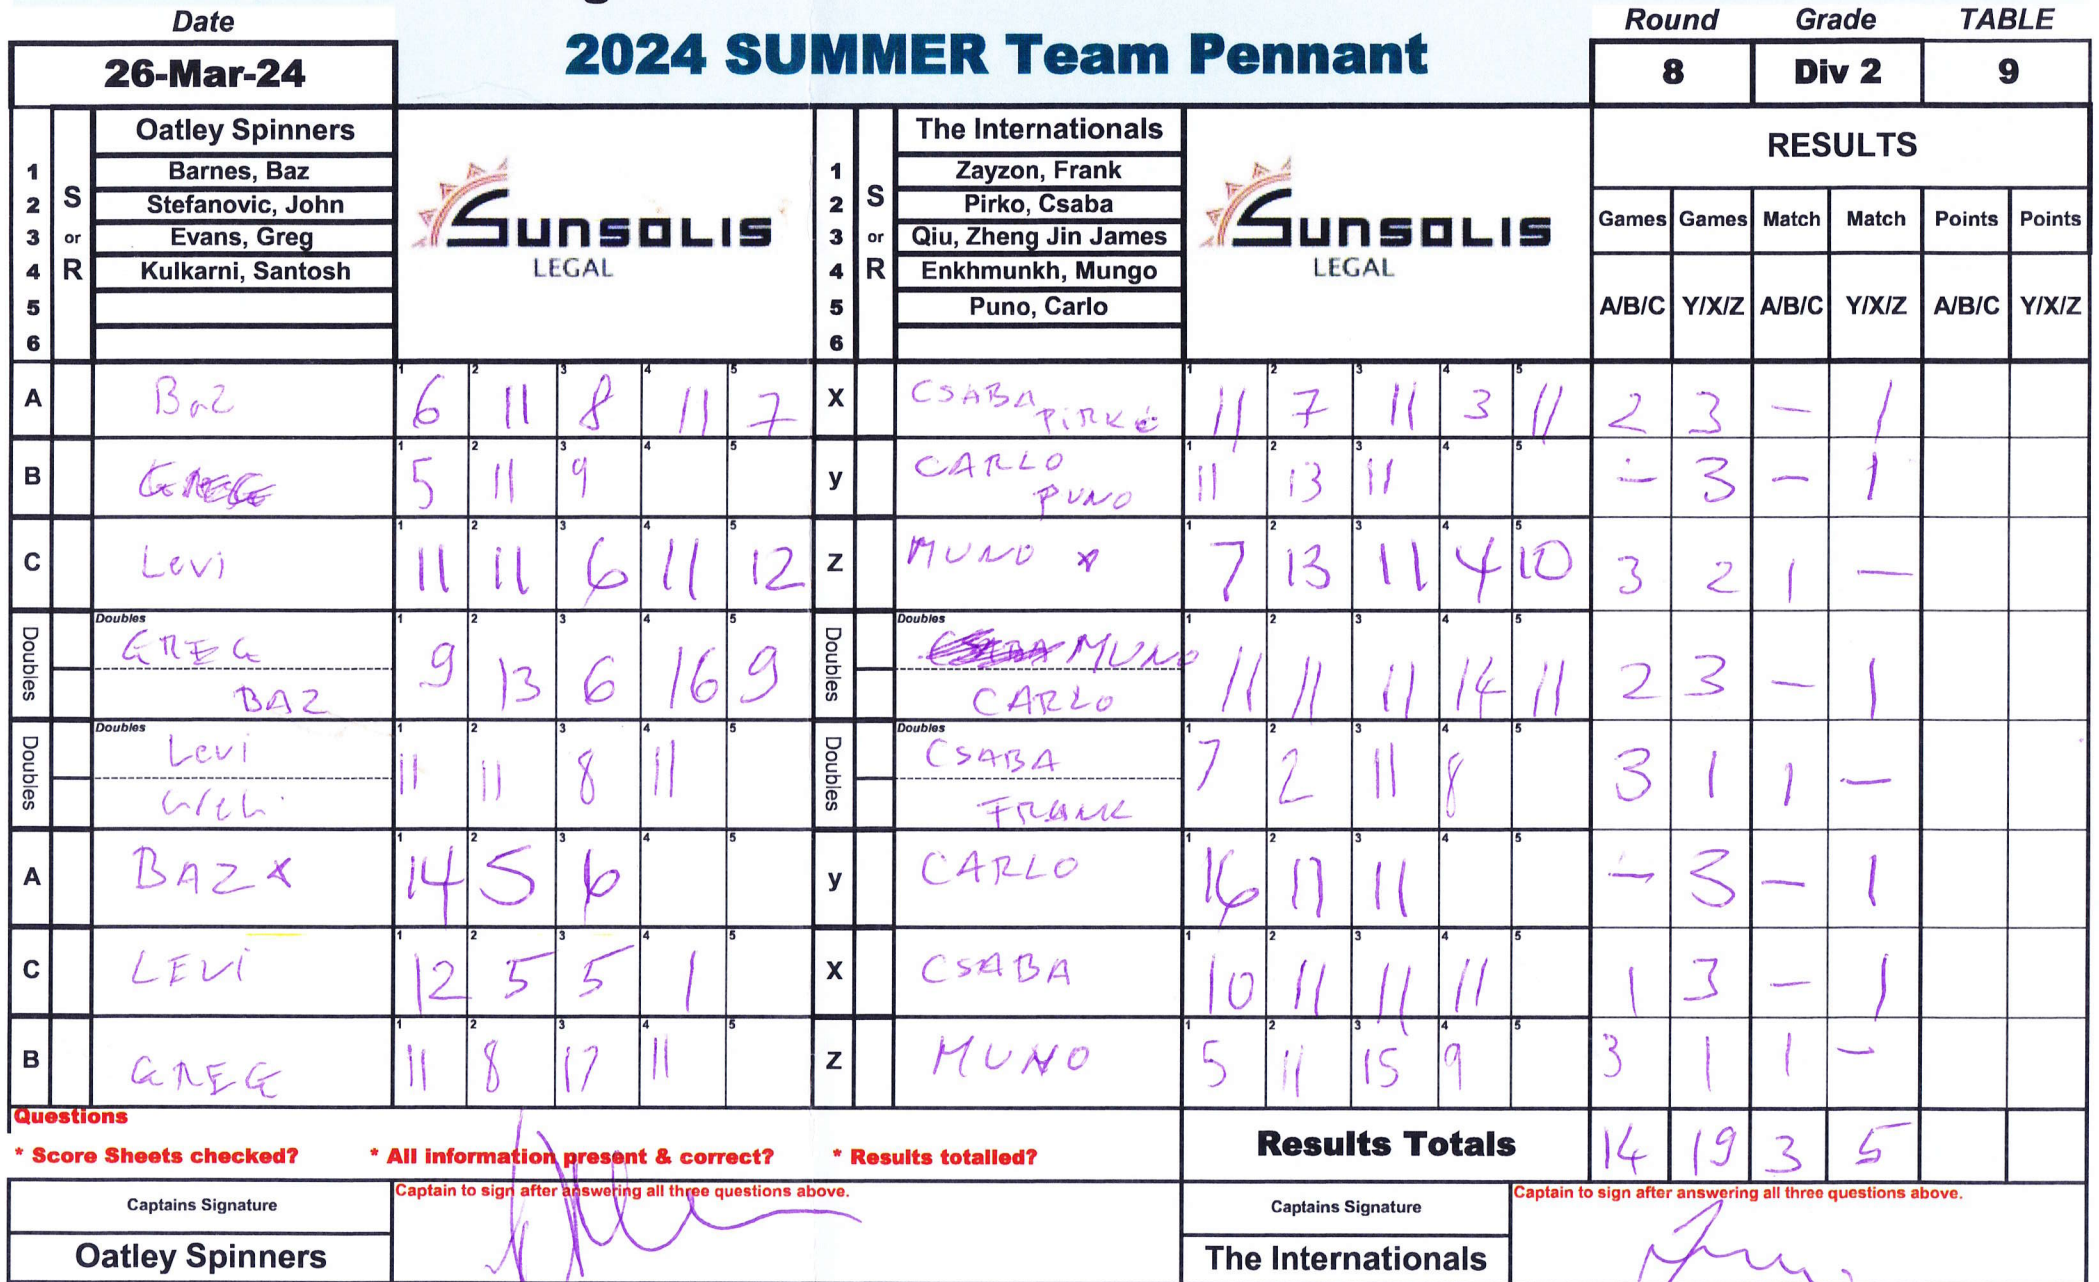 Date
26-Mar-24
2024 SUMMER Team Pennant
Round Grade TABLE
8 Div 2 9
Oatley Spinners
S or R
1 Barnes, Baz
2 Stefanovic, John
3 Evans, Greg
4 Kulkarni, Santosh
5
6
SUNSOLIS
LEGAL
The Internationals
S or R
1 Zayzon, Frank
2 Pirko, Csaba
3 Qiu, Zheng Jin James
4 Enkhmunkh, Mungo
5 Puno, Carlo
6
SUNSOLIS
LEGAL
RESULTS
Games Games Match Match Points Points
A/B/C Y/X/Z A/B/C Y/X/Z A/B/C Y/X/Z
A Baz 6 11 8 11 7 X CSABA PIRKO 11 7 11 3 11 2 3 – 1
B GREG 5 11 9 y CARLO PUNO 11 13 11 – 3 – 1
C Levi 11 11 6 11 12 Z MUNO x 7 13 11 4 10 3 2 1 –
Doubles GREG 9 13 6 16 9 Doubles MUNO 11 11 11 14 11 2 3 – 1
BAZ CARLO
Doubles Levi 11 11 8 11 Doubles CSABA 7 2 11 8 3 1 1 –
FRANK
A BAZ x 14 5 6 y CARLO 16 11 11 – 3 – 1
C LEVI 12 5 5 1 X CSABA 10 11 11 11 1 3 – 1
B GREG 11 8 17 11 Z MUNO 5 11 15 9 3 1 1 –
Questions
* Score Sheets checked? * All information present & correct? * Results totalled?
Results Totals 14 19 3 5
Captains Signature
Captain to sign after answering all three questions above.
Oatley Spinners
Captains Signature
Captain to sign after answering all three questions above.
The Internationals